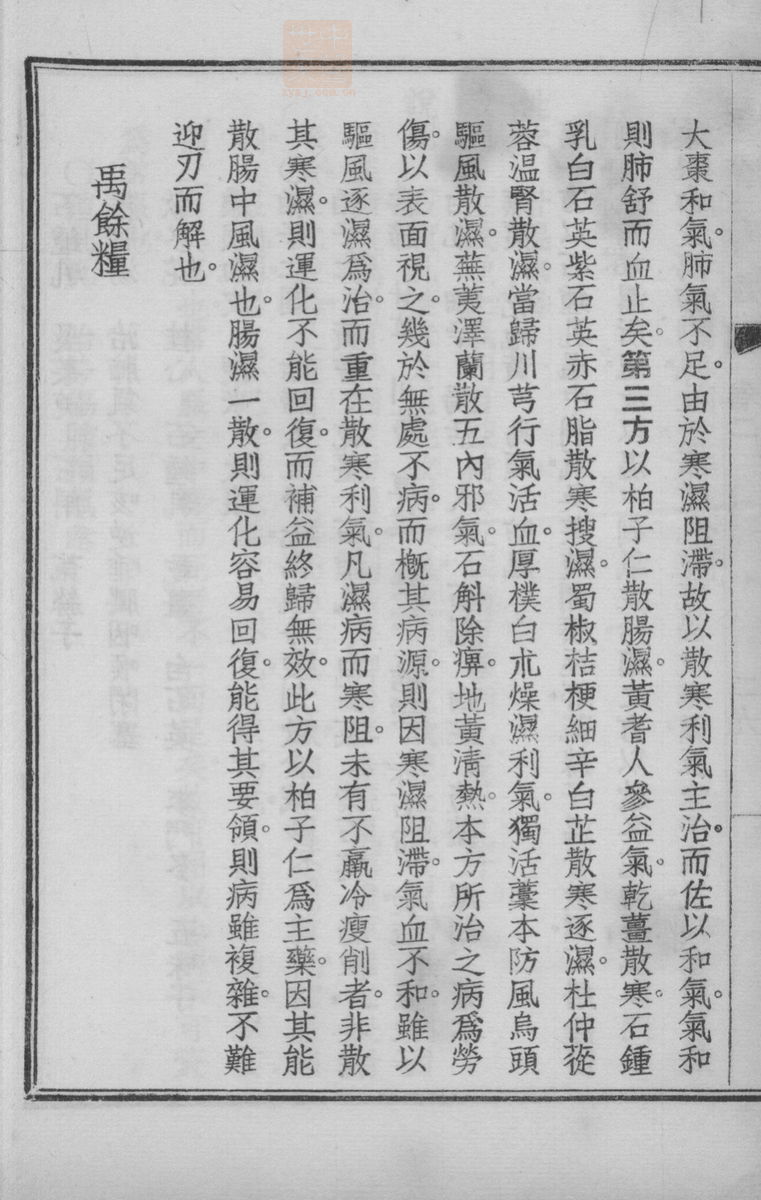 大棗和氣。肺氣不足。由於寒濕阻滯。故以散寒利氣主治。而佐以和氣。氣和
則肺舒而血止矣。第三方以柏子仁散腸濕。黃耆人參益氣。乾薑散寒。石鍾
乳白石英紫石英赤石脂散寒搜濕。蜀椒桔梗細辛白芷散寒逐濕。杜仲蓯
蓉温腎散濕。當歸川芎行氣活血。厚樸白朮燥濕利氣。獨活藁本防風烏頭
驅風散濕。蕪荑澤蘭散五內邪氣。石斛除痹。地黃清熱。本方所治之病爲勞
傷。以表面視之。幾於無處不病。而概其病源。則因寒濕阻滯。氣血不和。雖以
驅風逐濕爲治。而重在散寒利氣。凡濕病而寒阻。未有不羸冷瘦削者。非散
其寒濕。則運化不能回復。而補益終歸無效。此方以柏子仁爲主藥。因其能
散腸中風濕也。腸濕一散。則運化容易回復。能得其要領。則病雖複雜。不難
迎刃而解也。
禹餘糧